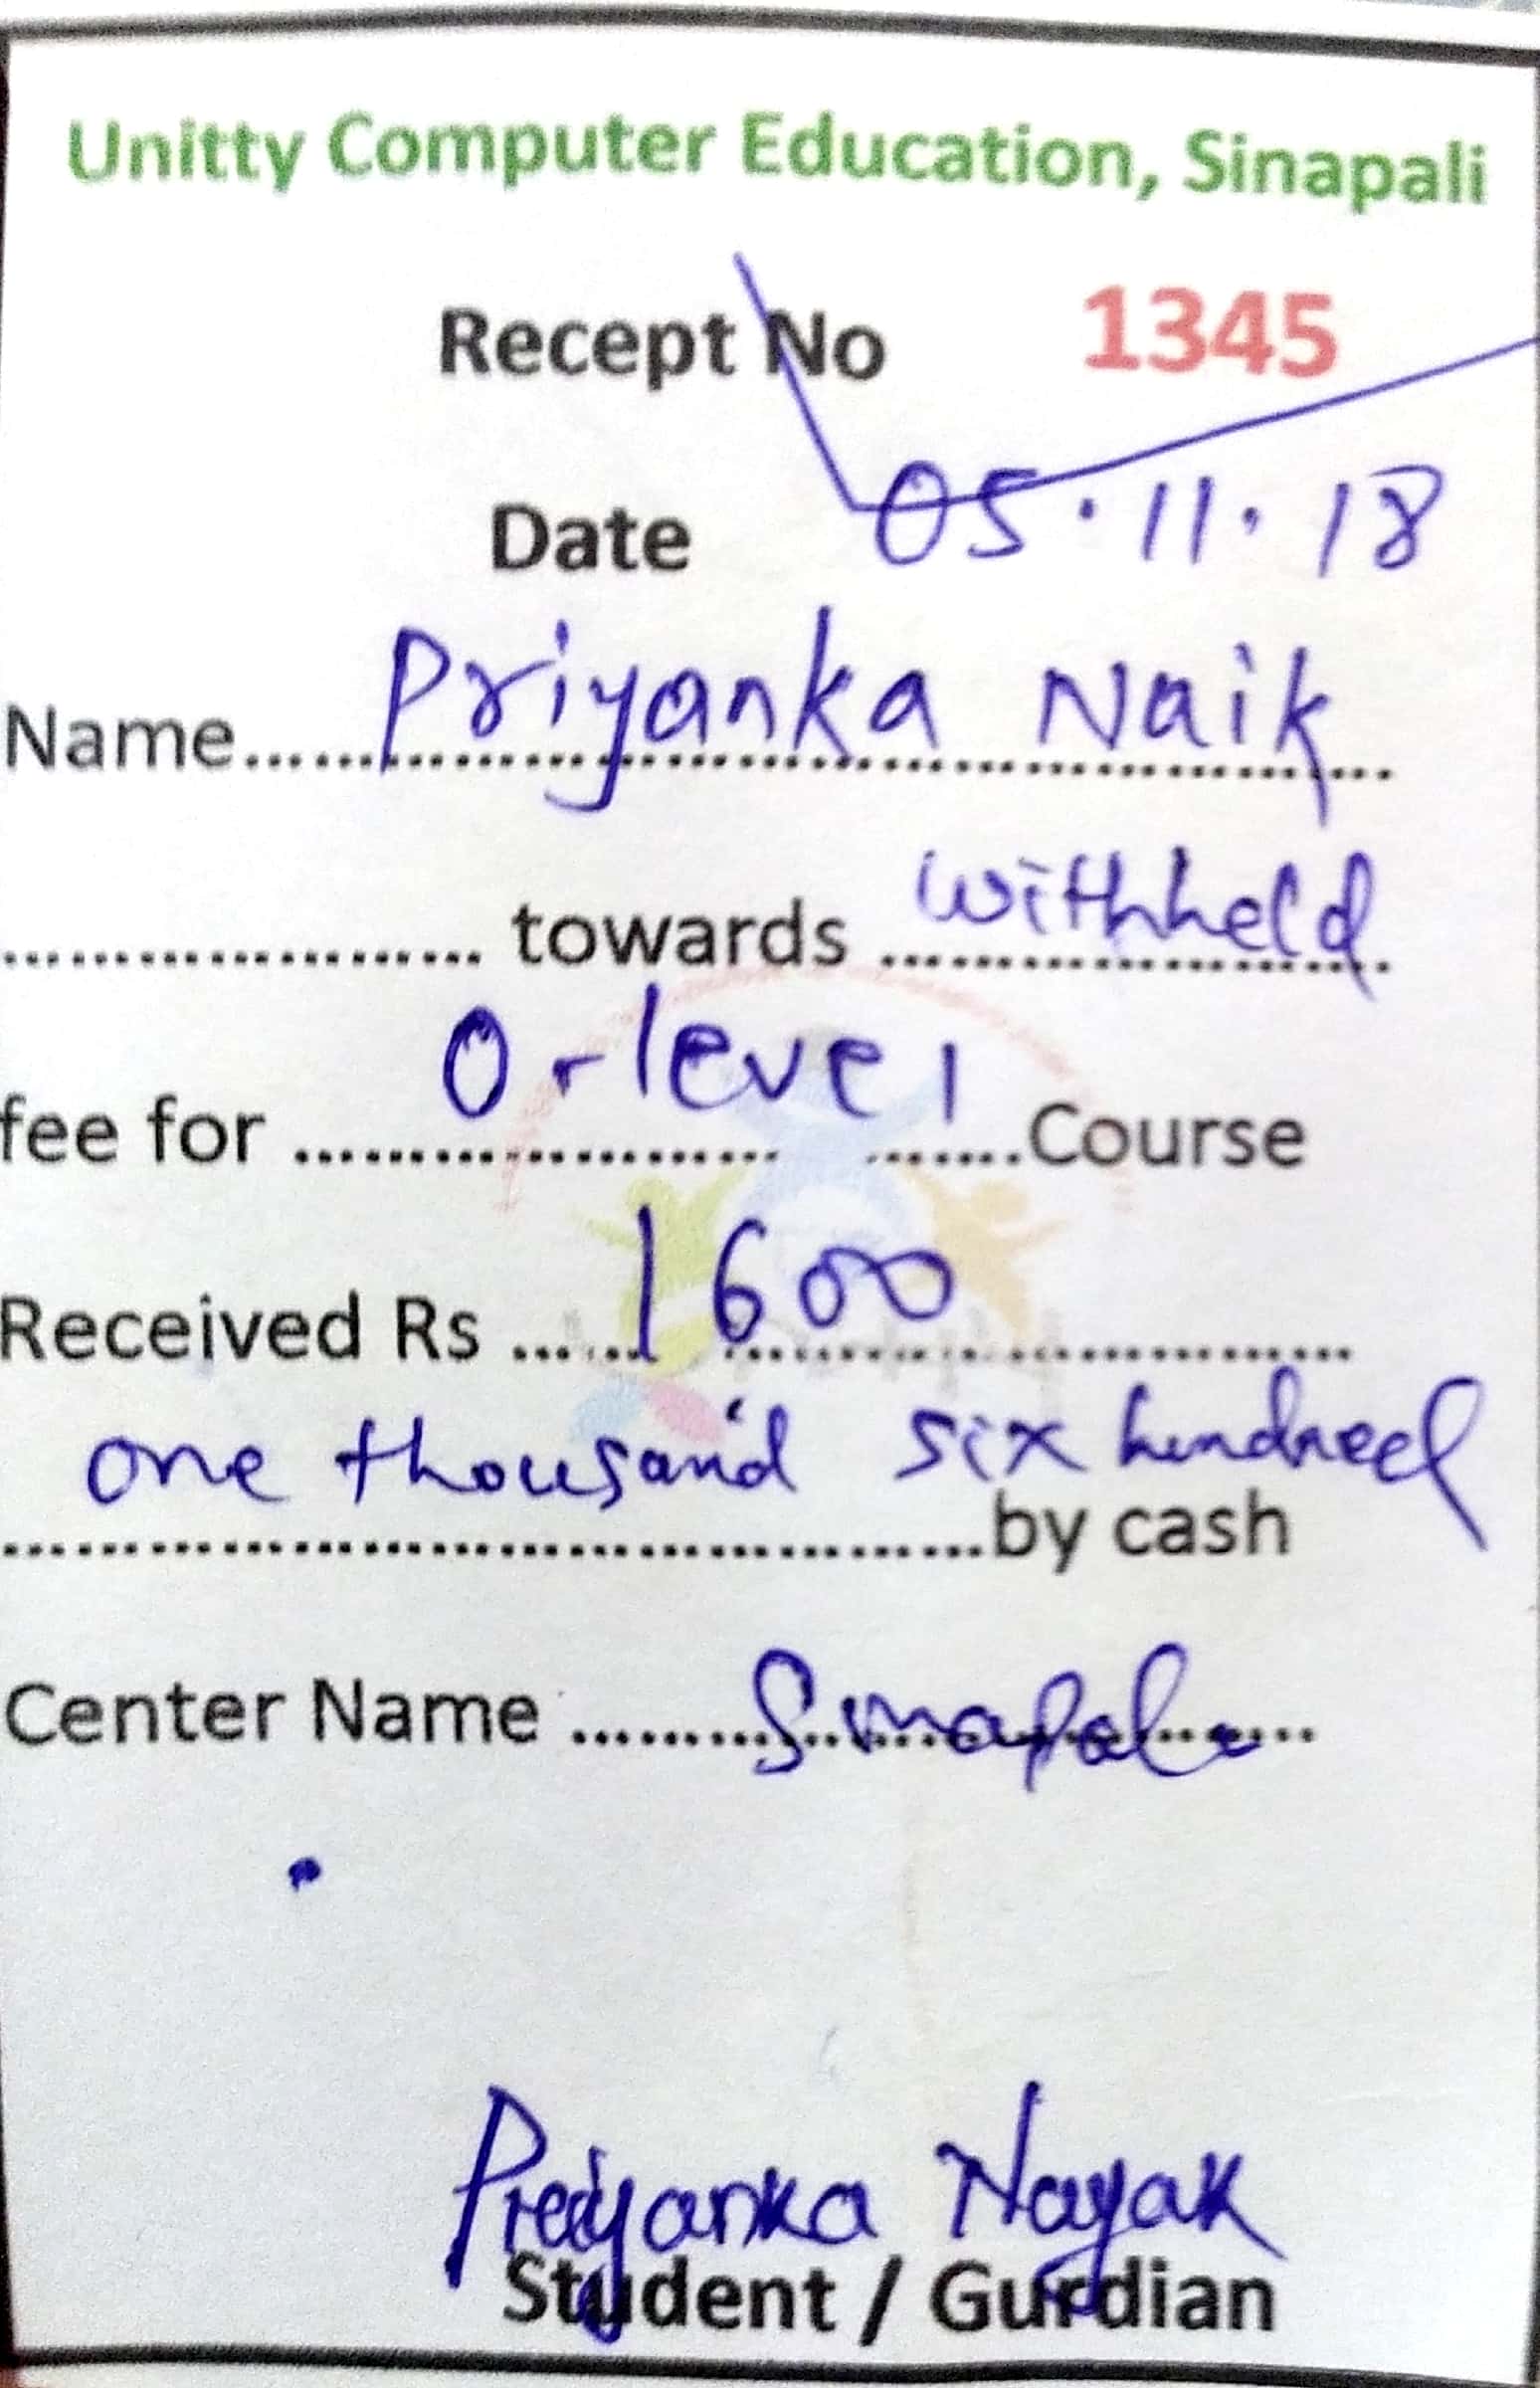 Unitty Computer Education, Sinapali
Recept No 1345
Date 05.11.18
Name...... Priyanka Naik
........................ towards withheld
fee for ........ O-level ........Course
Received Rs ...... 1600
one thousand six hundred
........................by cash
Center Name ......... Sinapali
Priyanka Nayak
Student / Gurdian